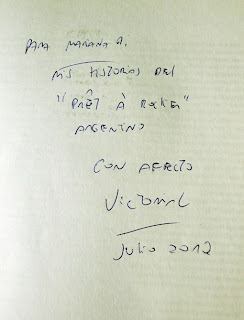 PARA MARIANA A.
MIS HISTORIAS DEL
"PRÊT À ROKER"
ARGENTINO
CON AFECTO
VICTORIA L
JULIO 2012